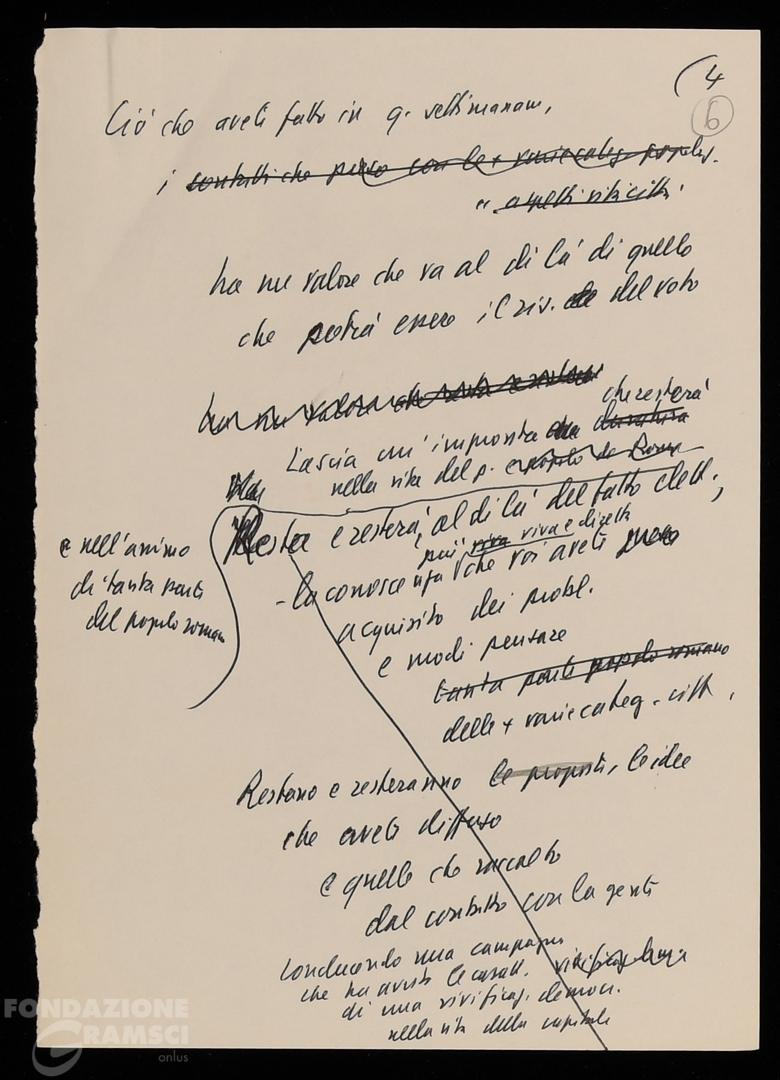 (4
6
Ciò che avete fatto in q. settimanam,
i contatti che preso con le + varie categ. popolaz.
" aspetti vita città.
ha un valore che va al di là di quello
che potrà essere il ris. del voto
ha un valore che
Lascia un'impronta che duratura che resterà
nella vita del p. e popolo di Roma
Resta e resterà, al di là del fatto elett.,
più viva viva e diretta
- la conoscenza che voi avete
acquisito dei probl.
e modi pensare
tanta parte popolo romano
delle + varie categ. citt.
e nell'animo
di tanta parte
del popolo romano
Restano e resteranno le proposte, le idee
che avete diffuso
e quelle che raccolto
dal contatto con la gente
conducendo una campagna
che ha avuto le caratt.
di una vivificaz. democr.
nella vita della capitale
FONDAZIONE
GRAMSCI
onlus